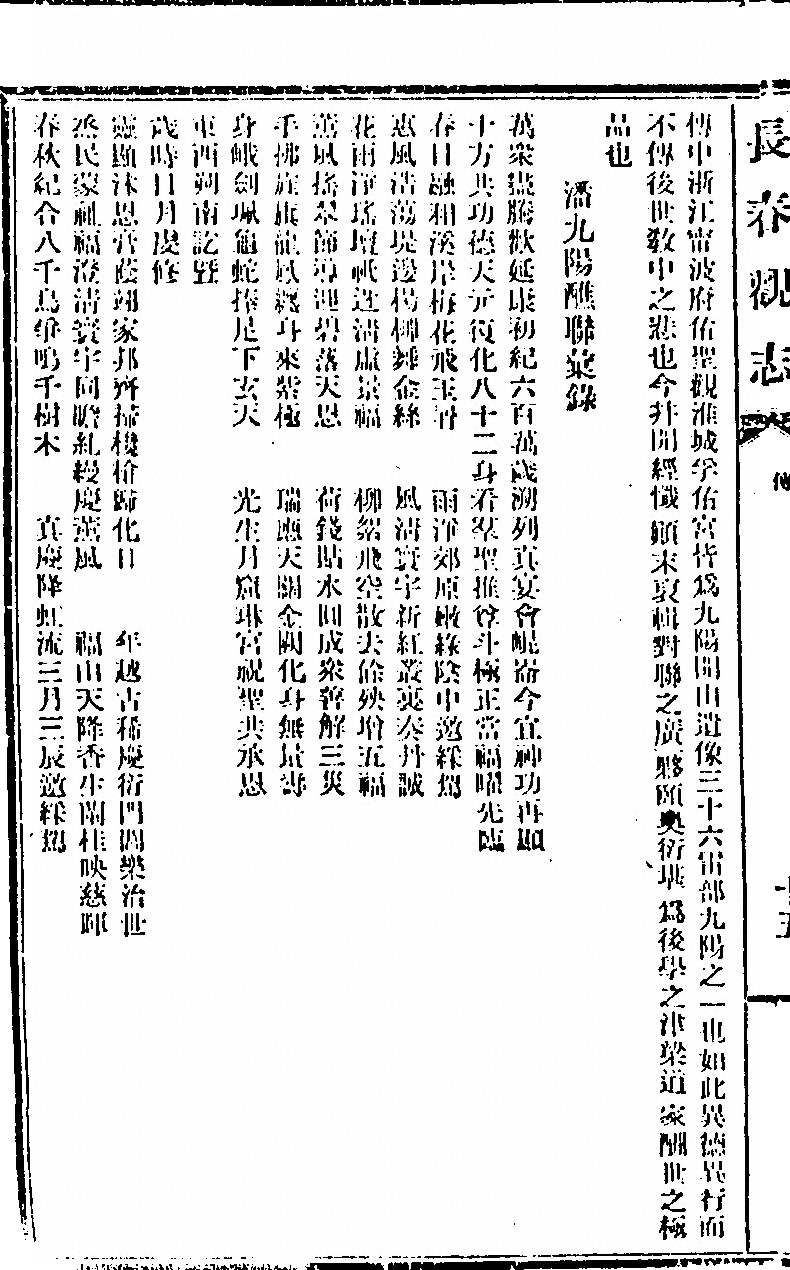 長春觀志
傳
十五
傳中浙江甯波府佑聖觀淮城孚佑宮皆爲九陽開山遺像三十六雷部九陽之一也如此異德異行而
不傳後世敎中之悲也今幷開經懺顚末裒輯對聯之廣夥頤奧衍堪爲後學之津梁道家酬世之極
品也
潘九陽醮聯彙錄
萬衆盡騰歡延康初紀六百萬歲溯列真宴會崐崙今宜神功再顯
十方共功德天元復化八十二身看羣聖推尊斗極正當福曜先臨
春日融和溪岸梅花飛玉屑 雨淨郊原嫩綠陰中邀綵駕
惠風浩蕩堤邊楊柳舞金絲 風清寰宇新紅叢裏奏丹誠
花雨淨瑤壇祇迓清虛景福 柳絮飛空散去餘殃增五福
薰風搖翠節導迎碧落天恩 荷錢貼水圓成衆善解三災
手拂旌旗龍鳳繞身來紫極 瑞應天開金闕化身無量壽
身峨劍珮龜蛇捧足下玄天 光生月窟琳宮祝聖共承恩
東西朔南訖暨
歲時日月虔修
靈顯沐恩膏蔭翊家邦齊掃欃槍歸化日 年越古稀慶衍門閭樂治世
烝民蒙祉福澄清寰宇同瞻糺縵慶薰風 福由天降香生蘭桂映慈暉
春秋紀合八千鳥爭鳴千樹木 真慶降虹流三月三辰邀綵駕